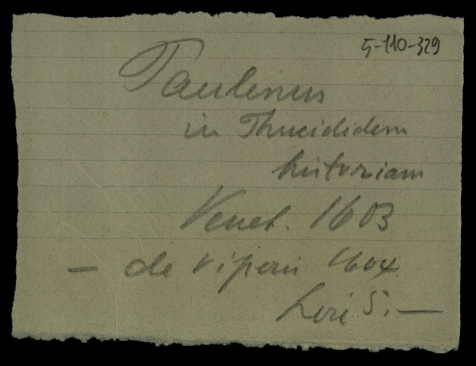 5-110-329
Paulinus
in Thucididem
historiam
Venet. 1603
— de viperis 1604
5. —